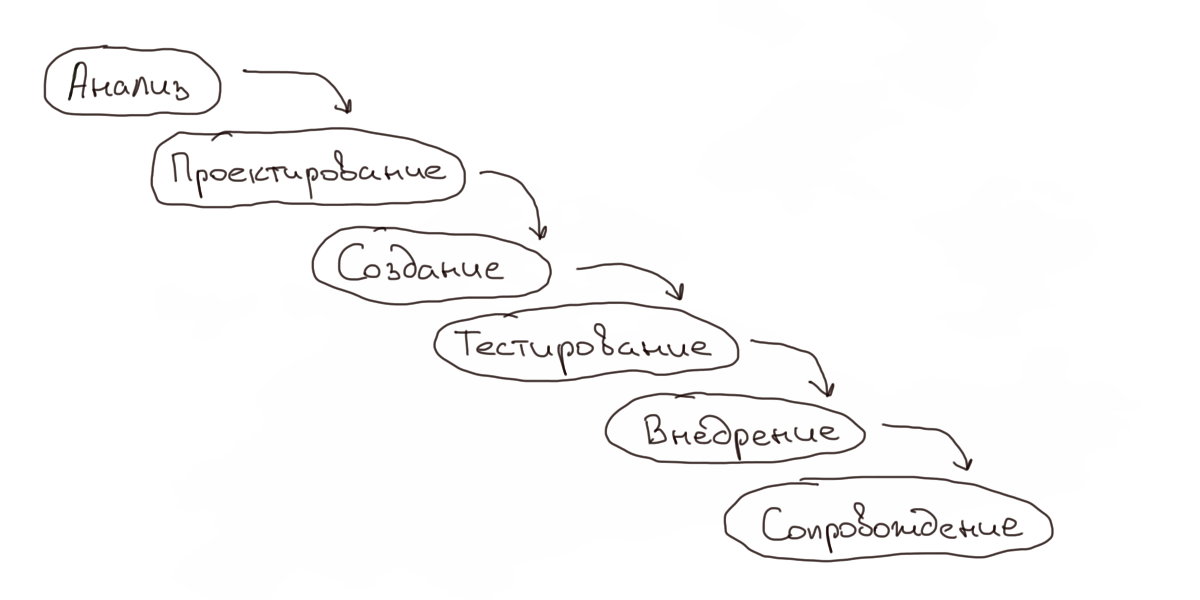 Анализ
Проектирование
Создание
Тестирование
Внедрение
Сопровождение